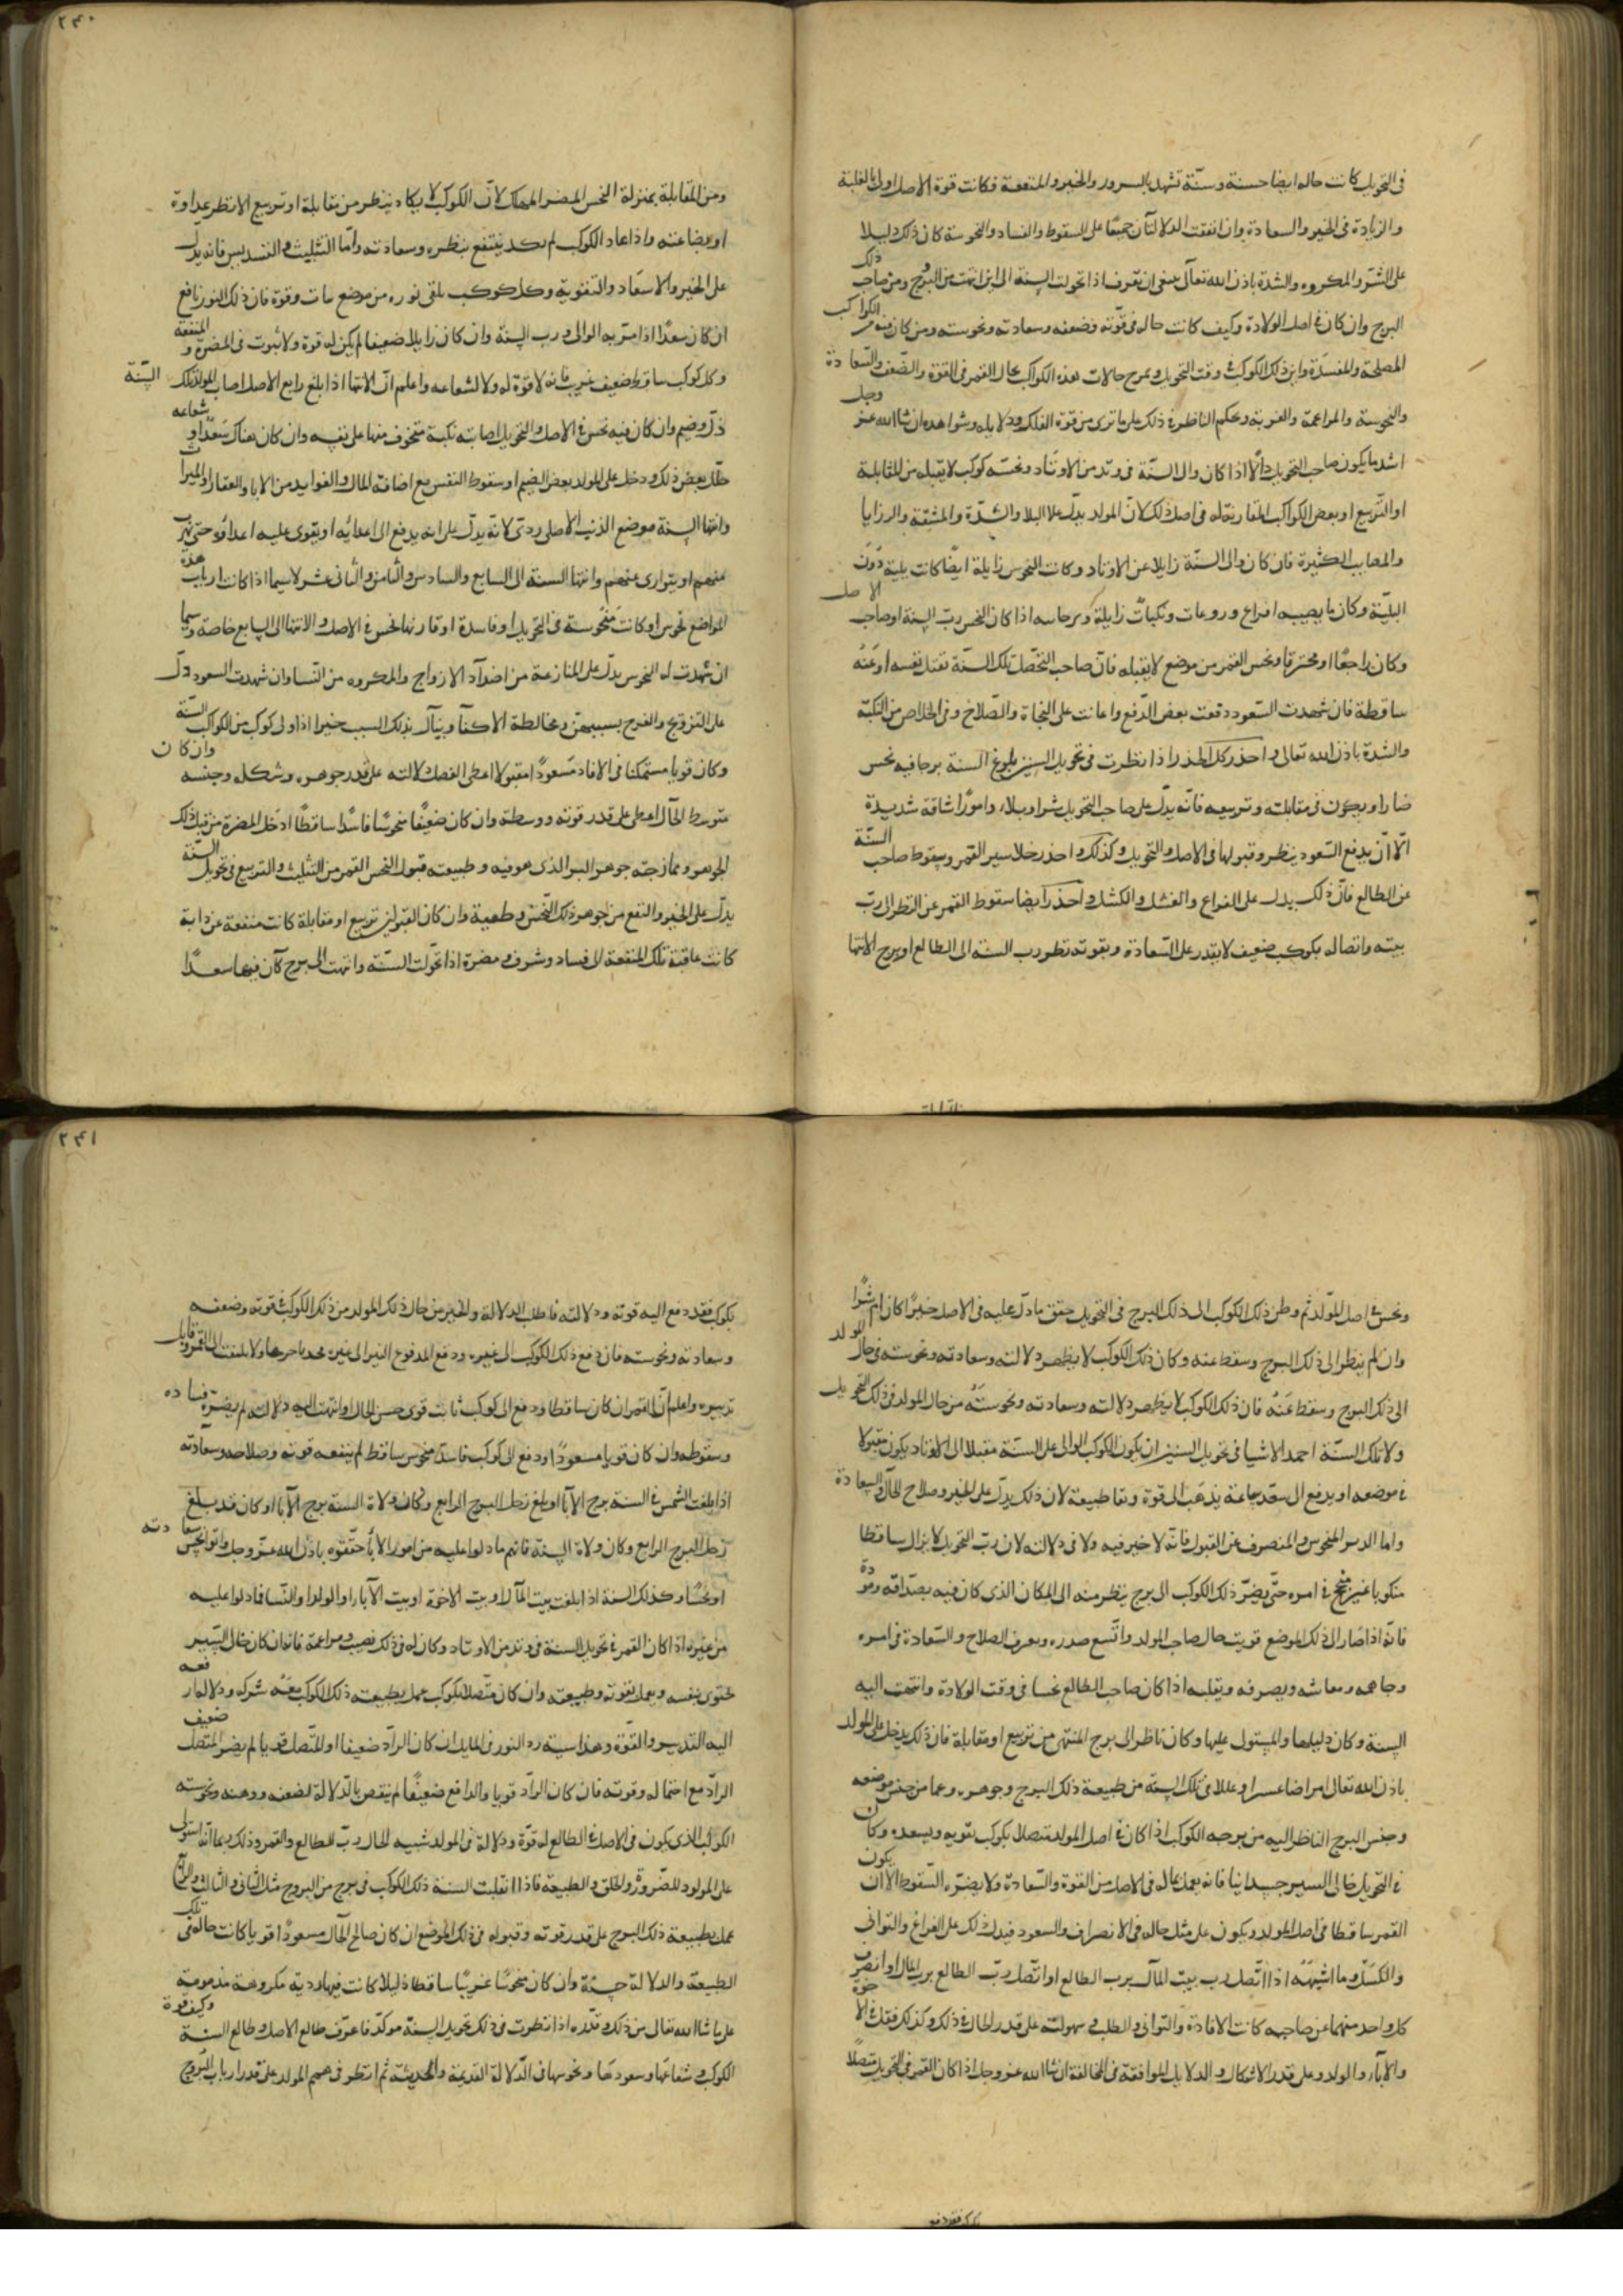 ٢٤٠
فى التحويل كانت حاله ايضا حسنة وسنّة تشهد بالسرور والخير والمنفعة فكانت قوة الاصل اولى بالغلبة
والزيادة فى الخير والسعادة وان اتفقت الدلالتان جميعًا على السقوط والفساد والنحوسة كان ذلك دليلا
على الشرّ والمكروه والشدة باذن الله تعالى ينبغى ان تعرف اذا تحولت السنة الى اين انتهت من البروج ومن صاحب ذلك
البرج وان كان فى اصل الولادة وكيف كانت حاله فى قوّته وضعفه وسعادته ونحوسته ومن كان فيه من الكواكب
المصلحة والمفسدة واين ذلك الكوكب فى وقت التحويل وتمزج حالات هذه الكواكب بحال القمر فى القوة والضعف والسّعادة
والنحوسة والمزاعمة والغربة ويحكم الناظر فى ذلك على ما ترى من قوة الفلك ودلايله وشواهده ان شا الله عز وجل
اشد ما يكون صاحب التحويل حالا اذا كان والى السّنة فى وتد من الاوتاد ونحسه كوكب لا يقبله من المقابلة
او التّربيع او بعض الكواكب المقارنة له فى اصل ذلك لانّ المولد يدلّ على البلا والشدّة والمشقة والرزايا
والمعايب الكثيرة فان كان والى السنّة زايلا عن الاوتاد وكانت النحوس زايلة ايضًا كانت بلية دون
البليّة وكان ما يصيبه افزاع وروعات ونكبات زايلة اذا كان النحس ربّ السنة او صاحب الاصل
وكان راجعًا او محترقا ونحس القمر من موضع لا يقبله فانّ صاحب تلك السّنة نقتل نفسه او عنه
ساقطة فان شهدت السّعود دفعت بعض الدّفع واعانت على النجاة والصّلاح وفى الخلاص من النكبة
والشدة باذن الله تعالى واحذر كل الحذر اذا نظرت فى تحويل السنين بلوغ السنة برجا فيه نحس
ضارا ويكون فى مقابلته وتربيعه فانّه يدلّ على صاحب التحويل شرا وبلاء وامورًا شاقة شديدة
الّا انّ يدفع السّعود ينظر وقبولها فى الاصل والتحويل وكذلك واحذر خلا سير القمر وسقوط صاحب السّنة
عن الطالع فانّ ذلك يدل على الفراغ والفشل والكسل واحذر ايضا سقوط القمر عن النظر الى ربّ
بيته واتصاله بكوكب ضعيف لا يقدر على السّعادة وبقوته نظر رب السنة الى الطالع او برج الانتها
ومن المقابلة بمنزلة النحس المضر المهلك لانّ الكوكب لا يكاد ينظر من مقابلة او تربيع الا نظر عداوة
او بضاعته واذا عاد الكوكب لم يكد ينتفع بنظره وسعادته وامّا التثليث والتسديس فانه يدل
على الخير والاسعاد والتقوية وكل كوكب يلقى نوره من موضع ثابت وقوة فان ذلك النور نافع
ان كان سعدًا اذا مر به الوالى ورب السنة وان كان زايلا ضعيفا لم يكن له قوة ولا ثبوت فى المضرة والمنفعة
وكل كوكب ساقط ضعيف غريب فانه لا قوة له ولا لشعاعه واعلم انّ الانتها اذا بلغ رابع الاصل اصاب المولد تلك السّنة
ذلّ وضيم وان كان فيه نحس فى الاصل والتحويل اصابته نكبة متخوف منها على نفسه وان كان هناك سعدًا او شعاعه
حلّل بعض ذلك ودخل على المولد بعض الضيم او سقوط النفس مع اضافة المال والفوايد من الابا والعقار او الميراث
وانتها السنة موضع الذنب الاصلى ردى لانّه يدلّ على انه يدفع الى اعدائه او يقوى عليه اعداؤه حتى يهرب
منهم او يتوارى عنهم وانتها السنة الى السابع والسادس والثامن والثانى عشر لا سيما اذا كانت ارباب هذه
المواضع نحوس او كانت منحوسة فى التحويل او فاسدة او قارنها نحس فى الاصل والانتها الى السابع خاصة وسيما
ان شهدت له النحوس يدلّ على المنازعة من اضداد الازواج والمكروه من النّسا وان شهدت السعود دلّ
على التزويج والفرح بسببهنّ ومخالطة الاكفا وينال بذلك السبب خيرا اذا ولى كوكب من الكواكب السّنة
وكان قويا مستمكنا فى الافاد مسعودًا مقبولا اعطى الفضل دلالته على قدر جوهره وشكله وجنسه وان كان
متوسط الحال اعطى على قدر قوته ووسطه وان كان ضعيفًا منحوسًا فاسدًا ساقطًا ادخل المضرة من قبل ذلك
الجوهر وممازجته جوهر البرج الذى هو فيه وطبيعته قبول النحس القمر من التثليث والتربيع فى تحويل السّنة
يدلّ على الخير والنفع من جوهر ذلك النّحس وطبيعة وان كان القبول من تربيع او مقابلة كانت منفعة عن دابة
كانت عاقبة تلك المنفعة الى فساد وشر وفى مضرة اذا تحوّلت السّنة وانتهت الى برج كان فيها سعدًا
٢٤١
ونحس فى اصل المولد ثم وطن ذلك الكوكب الى ذلك البرج فى التحويل حقق ما دلّ عليه فى الاصل خيرًا كان ام شرًا
وان لم ينظر الى ذلك البرج وسقط عنه وكان ذلك الكوكب لا يظهر دلالته وسعادته ونحوسته فى حال المولد
الى ذلك البرج وسقط عنه فان ذلك الكوكب لا يظهر دلالته وسعادته ونحوسته من حال المولد فى ذلك التحويل
ولا تلك السنّة احمد الاشيا فى تحويل السنين ان يكون الكوكب الوالى على السنّة مقبلا الى الاوتاد يكون مقبولا
فى موضعه او يدفع الى سعد بها عنه يذهب الى قوة ونقا طبيعة لان ذلك يدلّ على الخير وصلاح الحال والسعادة
واما المنحوس والمنصرف عن القبول فانّه لا خير فيه ولا فى دلالته لان ربّ التحويل لا يزال ساقطا
منكوبا غير منجح فى امره حتّى يصير ذلك الكوكب الى برج ينظر منه الى المكان الذى كان فيه بصداقة ومودّة
فانّه اذا صار الى ذلك الموضع قويت حال صاحب المولد واتّسع صدره ويعرف الصلاح والسّعادة فى امره
وجاهه ومعاشه وبصرفه وبقلبه اذا كان صاحب الطالع نحسا فى وقت الولادة وانتهت اليه
السنة وكان دليلها والمستول عليها وكان ناظر الى برج المنتهى من تربيع او مقابلة فان ذلك يدخل على المولد
باذن الله تعالى امراضا عسرا وعللا فى تلك السنة من طبيعة ذلك البرج وجوهره وعما من جنس موضعه
وجنس البرج الناظر اليه من برجه الكوكب اذا كان فى اصل المولد متصل بكوكب يقويه ويسعده وكان
فى التحويل خالى السير جيدا نيا فانه يعمل عمله فى الاصل من القوة والسّعادة ولا يضرّه السّقوط الا ان يكون
القمر ساقطا فى اصل المولد ويكون على مثل حاله فى الانصراف والسعود فيدل ذلك على الفراغ والتوانى
والكسل وما اشبهه اذا اتّصل رب بيت المال برب الطالع او اتّصل ربّ الطالع برب المال او انصرف
كل واحد منهما عن صاحبه كانت الافادة والتوانى والطلب فى سهولته على قدر الحال فى ذلك وكذلك فقل فى الاخوة
والاباء والولد وعلى قدر الاشكال والدلايل الموافقة فى المخالفة ان شا الله عز وجل اذا كان القمر فى التحويل متصلًا
بكوكب فقد دفع اليه قوته ودلالته فاطلب الدلالة والخير من حال ذلك المولد من ذلك الكوكب فى قوته وضعفه
وسعادته ونحوسته فان دفع ذلك الكوكب الى غيره ودفع المدفوع اليه الى غيره فخذ باخرها ولا يلتفت الى القمر وقابل
تدبيره واعلم انّ القمر ان كان ساقطا ودفع الى كوكب ثابت قوى حسن الحال او انتهت اليه دلالته لم يضرّه فساده
وسقوطه وان كان قويا مسعودًا ودفع الى كوكب فاسد منحوس ساقط لم ينفعه قوته وصلاحه وسعادته
اذا بلغت الشمس فى السنة برج الآبا او بلغ زحل البرج الرابع وكان ولاة السنة برج الآبا او كان قد بلغ
زحل البرج الرابع وكان ولاة السنة فانهم ما دلوا عليه من امور الآباء حقّقوه باذن الله عزّ وجل
او نحسًا وكذلك السنة اذا بلغت بيت المال او بيت الاخوة او بيت الآباء او الولد او النّسا فما دلوا عليه
من غيره اذا كان القمر فى تحويل السنة فى وتد من الاوتاد وكان له فى ذلك نصيب ومزاعمة فانه ان كان خالى السّير
محتوى بنفسه ويعمل بقوته وطبيعته وان كان متّصلا بكوكب عمل بطبيعة ذلك الكوكب معه شركه ودلالة لما رفعه
اليه التدبير والقوّة وهذا سببه رد النور فى الميلاد ان كان الرادّ ضعيفا او المتّصل قويا لم يضر المتّصل ضعيف
الرادّ مع احتماله وقوته فان كان الرادّ قويا والدافع ضعيفًا لم ينقص بالدلالة لضعفه ووهنه ونحوسته
الكوكب الذى يكون فى الاصل فى الطالع له قوّة ودلالة فى المولد شبيه الحال ربّ الطالع والقمر وذلك ربما انّه استولى
على المولود للضّرورة والخلق والطبيعة فاذا انقلبت السنة ذلك الكوكب فى برج من البروج مثل الثانى والثالث والرابع
عمل بطبيعة ذلك البرج على قدر قوته وقبوله فى ذلك الموضع ان كان صالح الحال مسعودًا قويا كانت حاله فى تلك
الطبيعة والدلالة حسنة وان كان منحوسًا غريبًا ساقطا ذليلا كانت فيها ردية مكروهة مذمومة
على ما شا الله تعالى من ذلك وقدّره اذا نظرت فى ذلك تحويل السنة موكدّ فاعرف طالع الاصل وطالع السنة وكيف قوة
الكوكب فى شعاعها وسعودها ونحوسها فى الدلالة القديمة والحديثة ثم انظر فى سهم المولد على قدر ارباب البروج